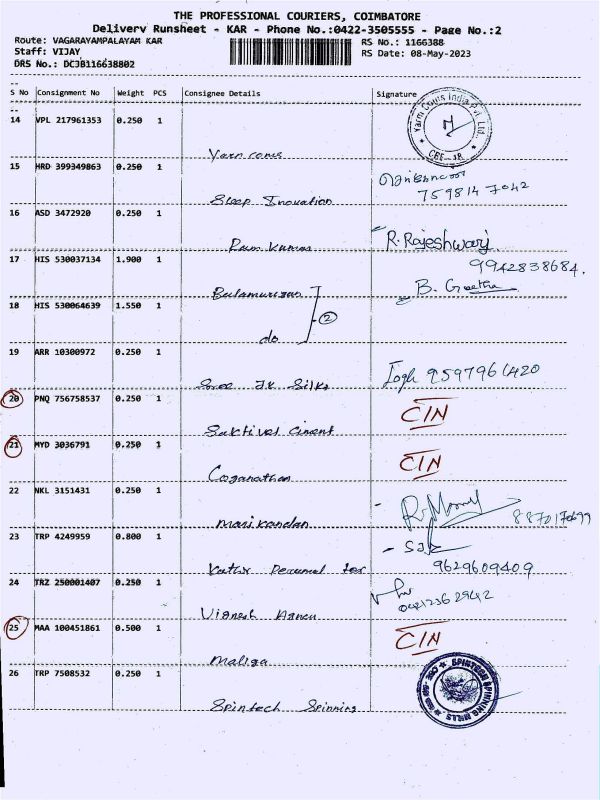 THE PROFESSIONAL COURIERS, COIMBATORE
Delivery Runsheet - KAR - Phone No.:0422-3505555 - Page No.:2
Route: VAGARAYAMPALAYAM KAR RS No.: 1166388
Staff: VIJAY RS Date: 08-May-2023
DRS No.: DCJB116638802
S No Consignment No Weight PCS Consignee Details Signature
14 VPL 217961353 0.250 1
Yarn coms
Yarn Coms India Pvt. Ltd. CBE-18
15 HRD 399349863 0.250 1
Sleep Inovation 759814 7042
16 ASD 3472920 0.250 1
Ram Kumar R. Rajeshwari
17 HIS 530037134 1.900 1 9942838684.
Balamurugan B. Geetha
18 HIS 530064639 1.550 1 2
do
19 ARR 10300972 0.250 1
Sree JK Silks 9597961420
20 PNQ 756758537 0.250 1 C/N
Saktivel Ciment
21 MYD 3036791 0.250 1 C/N
Coganathan
22 NKL 3151431 0.250 1
Manikandan
23 TRP 4249959 0.800 1
Kathir Perumal tex 9629609409
24 TRZ 250001407 0.250 1
Vignesh Agncy
25 MAA 100451861 0.500 1 C/N
Maliga
26 TRP 7508532 0.250 1
Spintech Spinning
SPINTECH SPINNING MILLS